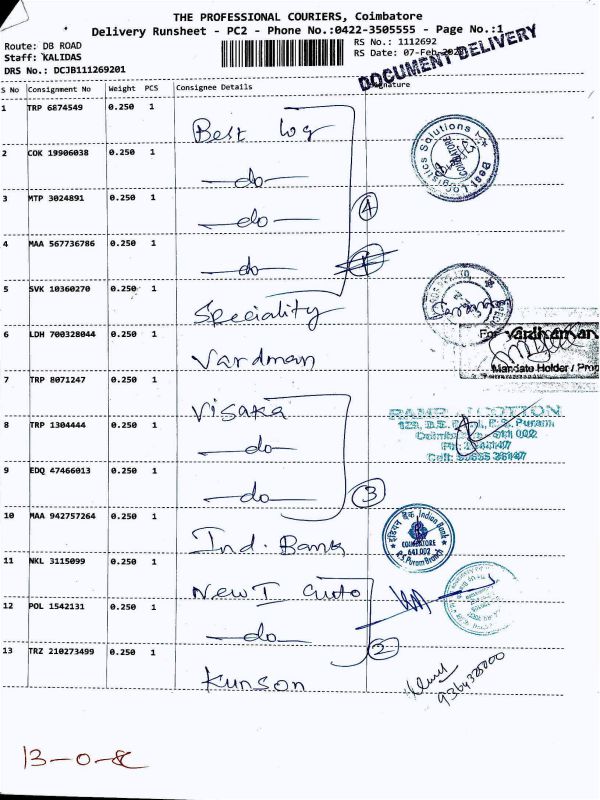 THE PROFESSIONAL COURIERS, Coimbatore
Delivery Runsheet - PC2 - Phone No.:0422-3505555 - Page No.:1
Route: DB ROAD
RS No.: 1112692
Staff: KALIDAS
RS Date: 07-Feb-
DRS No.: DCJB111269201
DOCUMENT DELIVERY
S No Consignment No Weight PCS Consignee Details
1 TRP 6874549 0.250 1 Best log
2 COK 19906038 0.250 1 —do—
3 MTP 3024891 0.250 1 —do— 4
4 MAA 567736786 0.250 1 —do—
5 SVK 10360270 0.250 1 Speciality
6 LDH 700328044 0.250 1 Vardman
7 TRP 8071247 0.250 1 Visaka
8 TRP 1304444 0.250 1 —do—
9 EDQ 47466013 0.250 1 —do— 3
10 MAA 942757264 0.250 1 Ind. Bank
11 NKL 3115099 0.250 1 New I
12 POL 1542131 0.250 1 —do— 2
13 TRZ 210273499 0.250 1 Kunson
Best Logistics Solutions
For Vardhaman
Mandate Holder / Prop
COTTON
R.S. Puram
641 002
Indian Bank
इंडियन बैंक
COIMBATORE
641 002
R.S. Puram Branch
13-0-